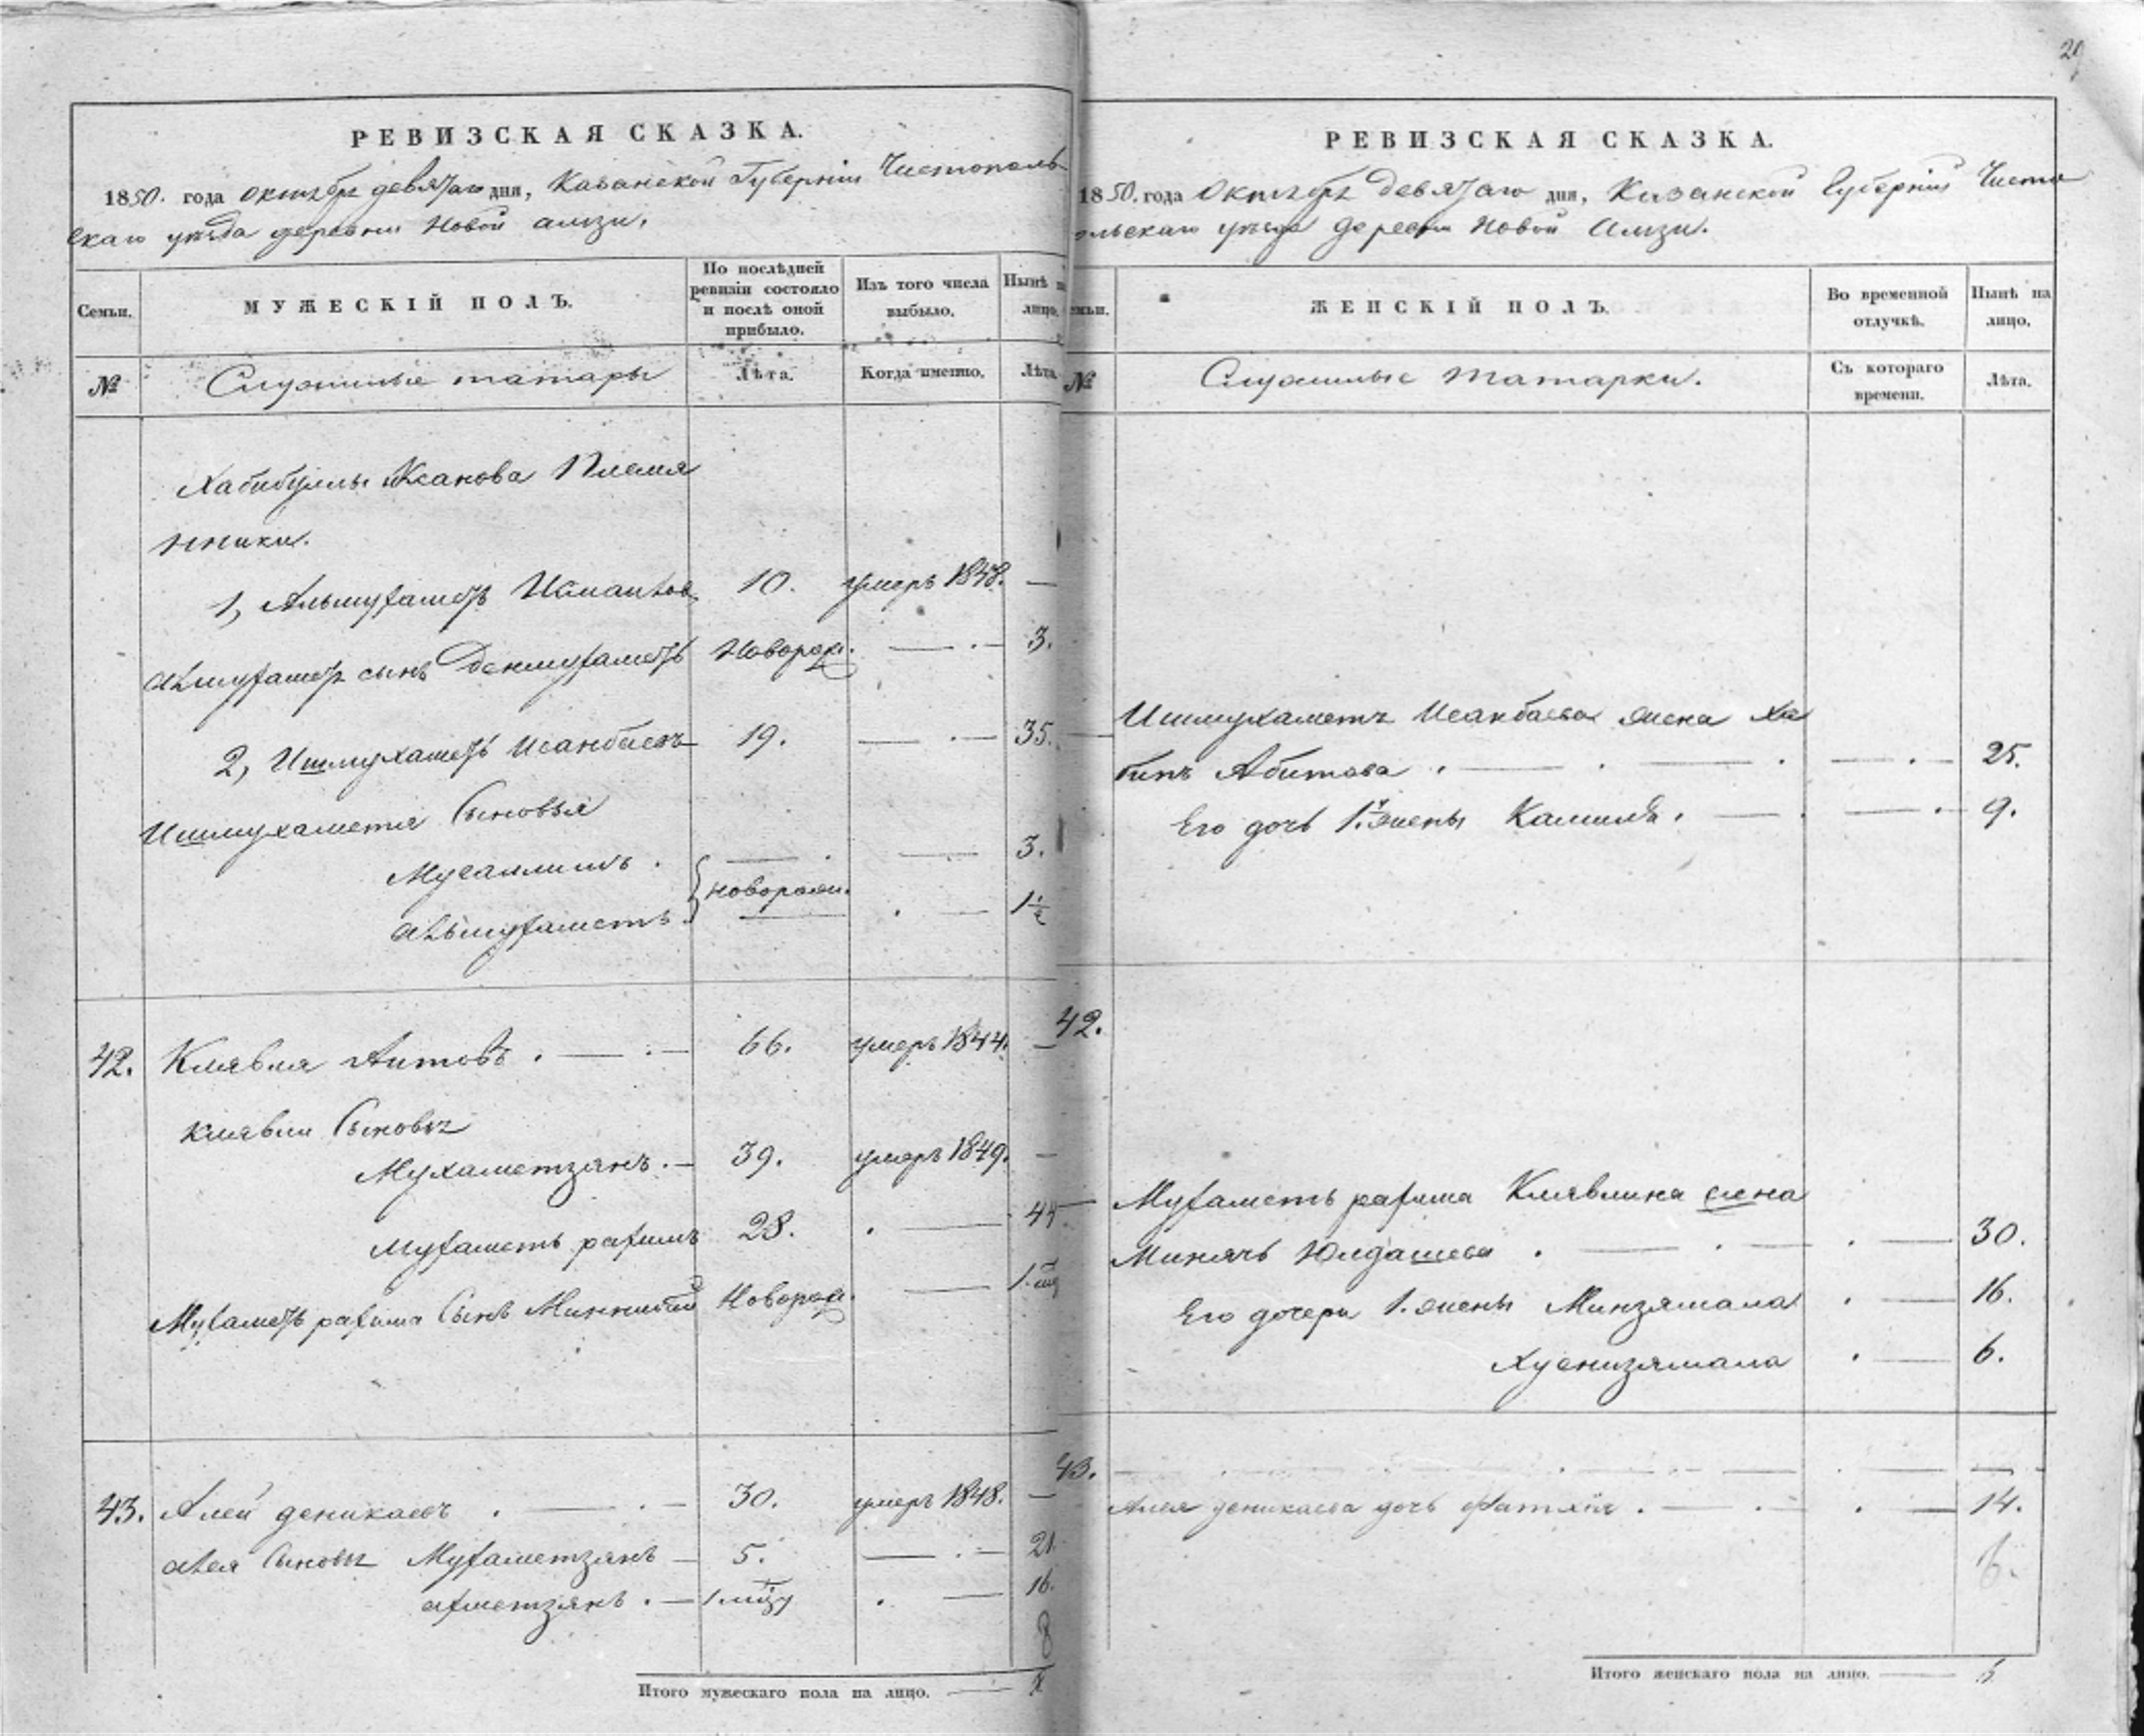 РЕВИЗСКАЯ СКАЗКА.
1850. года октября девятаго дня, Казанской Губернии Чистополь-
скаго уезда деревни Новой амзи.
Семьи.
МУЖЕСКІЙ ПОЛЪ.
По послѣдней ревизіи состояло и послѣ оной прибыло.
Изъ того числа выбыло.
Нынѣ на лицо.
№
Служилые татары
Лѣта.
Когда именно.
Лѣта.
Хабибуллы Племя
нники.
1, Альмухаметъ 10. умеръ 1848. —
сынъ Денмухаметъ Новорож. — 3.
2, Ишмухаметъ Исанбаевъ 19. — 35.
Ишмухаметя Сыновья
Мусаллимъ . — 3.
новорожд.
Альмухаметъ — 1½
42. Клявля Аитовъ . — 66. умеръ 1844. —
Клявли Сыновья
Мухаметзянъ . — 39. умеръ 1849. —
Мухаметь рахимъ 28. — 44
Мухаметь рахима Сынъ Новорож. — 1.
43. Алей деникаевъ . — 30. умеръ 1848. —
Алея Сыновья Мухаметзянъ — 5. — 21.
ахметзянъ . — 1 — 16.
8
Итого мужескаго пола на лицо. —
29
РЕВИЗСКАЯ СКАЗКА.
1850. года Октября девятаго дня, Казанской Губерніи Чисто
польскаго уезда деревни Новой Амзи.
Семьи.
ЖЕНСКІЙ ПОЛЪ.
Во временной отлучкѣ.
Нынѣ на лицо.
№
Служилые татарки.
Съ котораго времени.
Лѣта.
Ишмухаметъ Исанбаева жена Ха
бипъ Абитова . — 25.
Его дочь 1.й жены Камиля . — 9.
42.
Мухаметь рахима Клявлина жена
Минячь Юлдашева . — 30.
Его дочери 1. жены Минзямала . — 16.
Хуснизямала . — 6.
43.
Алея деникаева дочь . — 14.
6.
Итого женскаго пола на лицо. —